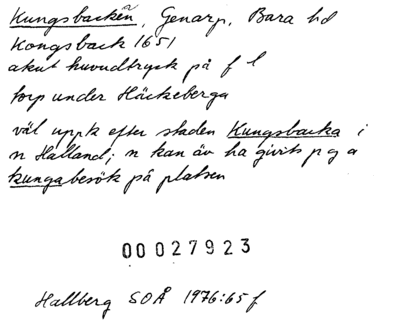 Kungsbacken, Genarp, Bara hd
Kongsback 1651
akut huvudtryck på f l
torp under Häckeberga
väl uppk efter staden Kungsbacka i
n Halland; n kan äv ha givits p g a
kungabesök på platsen
00027923
Hallberg SOÅ 1976:65 f